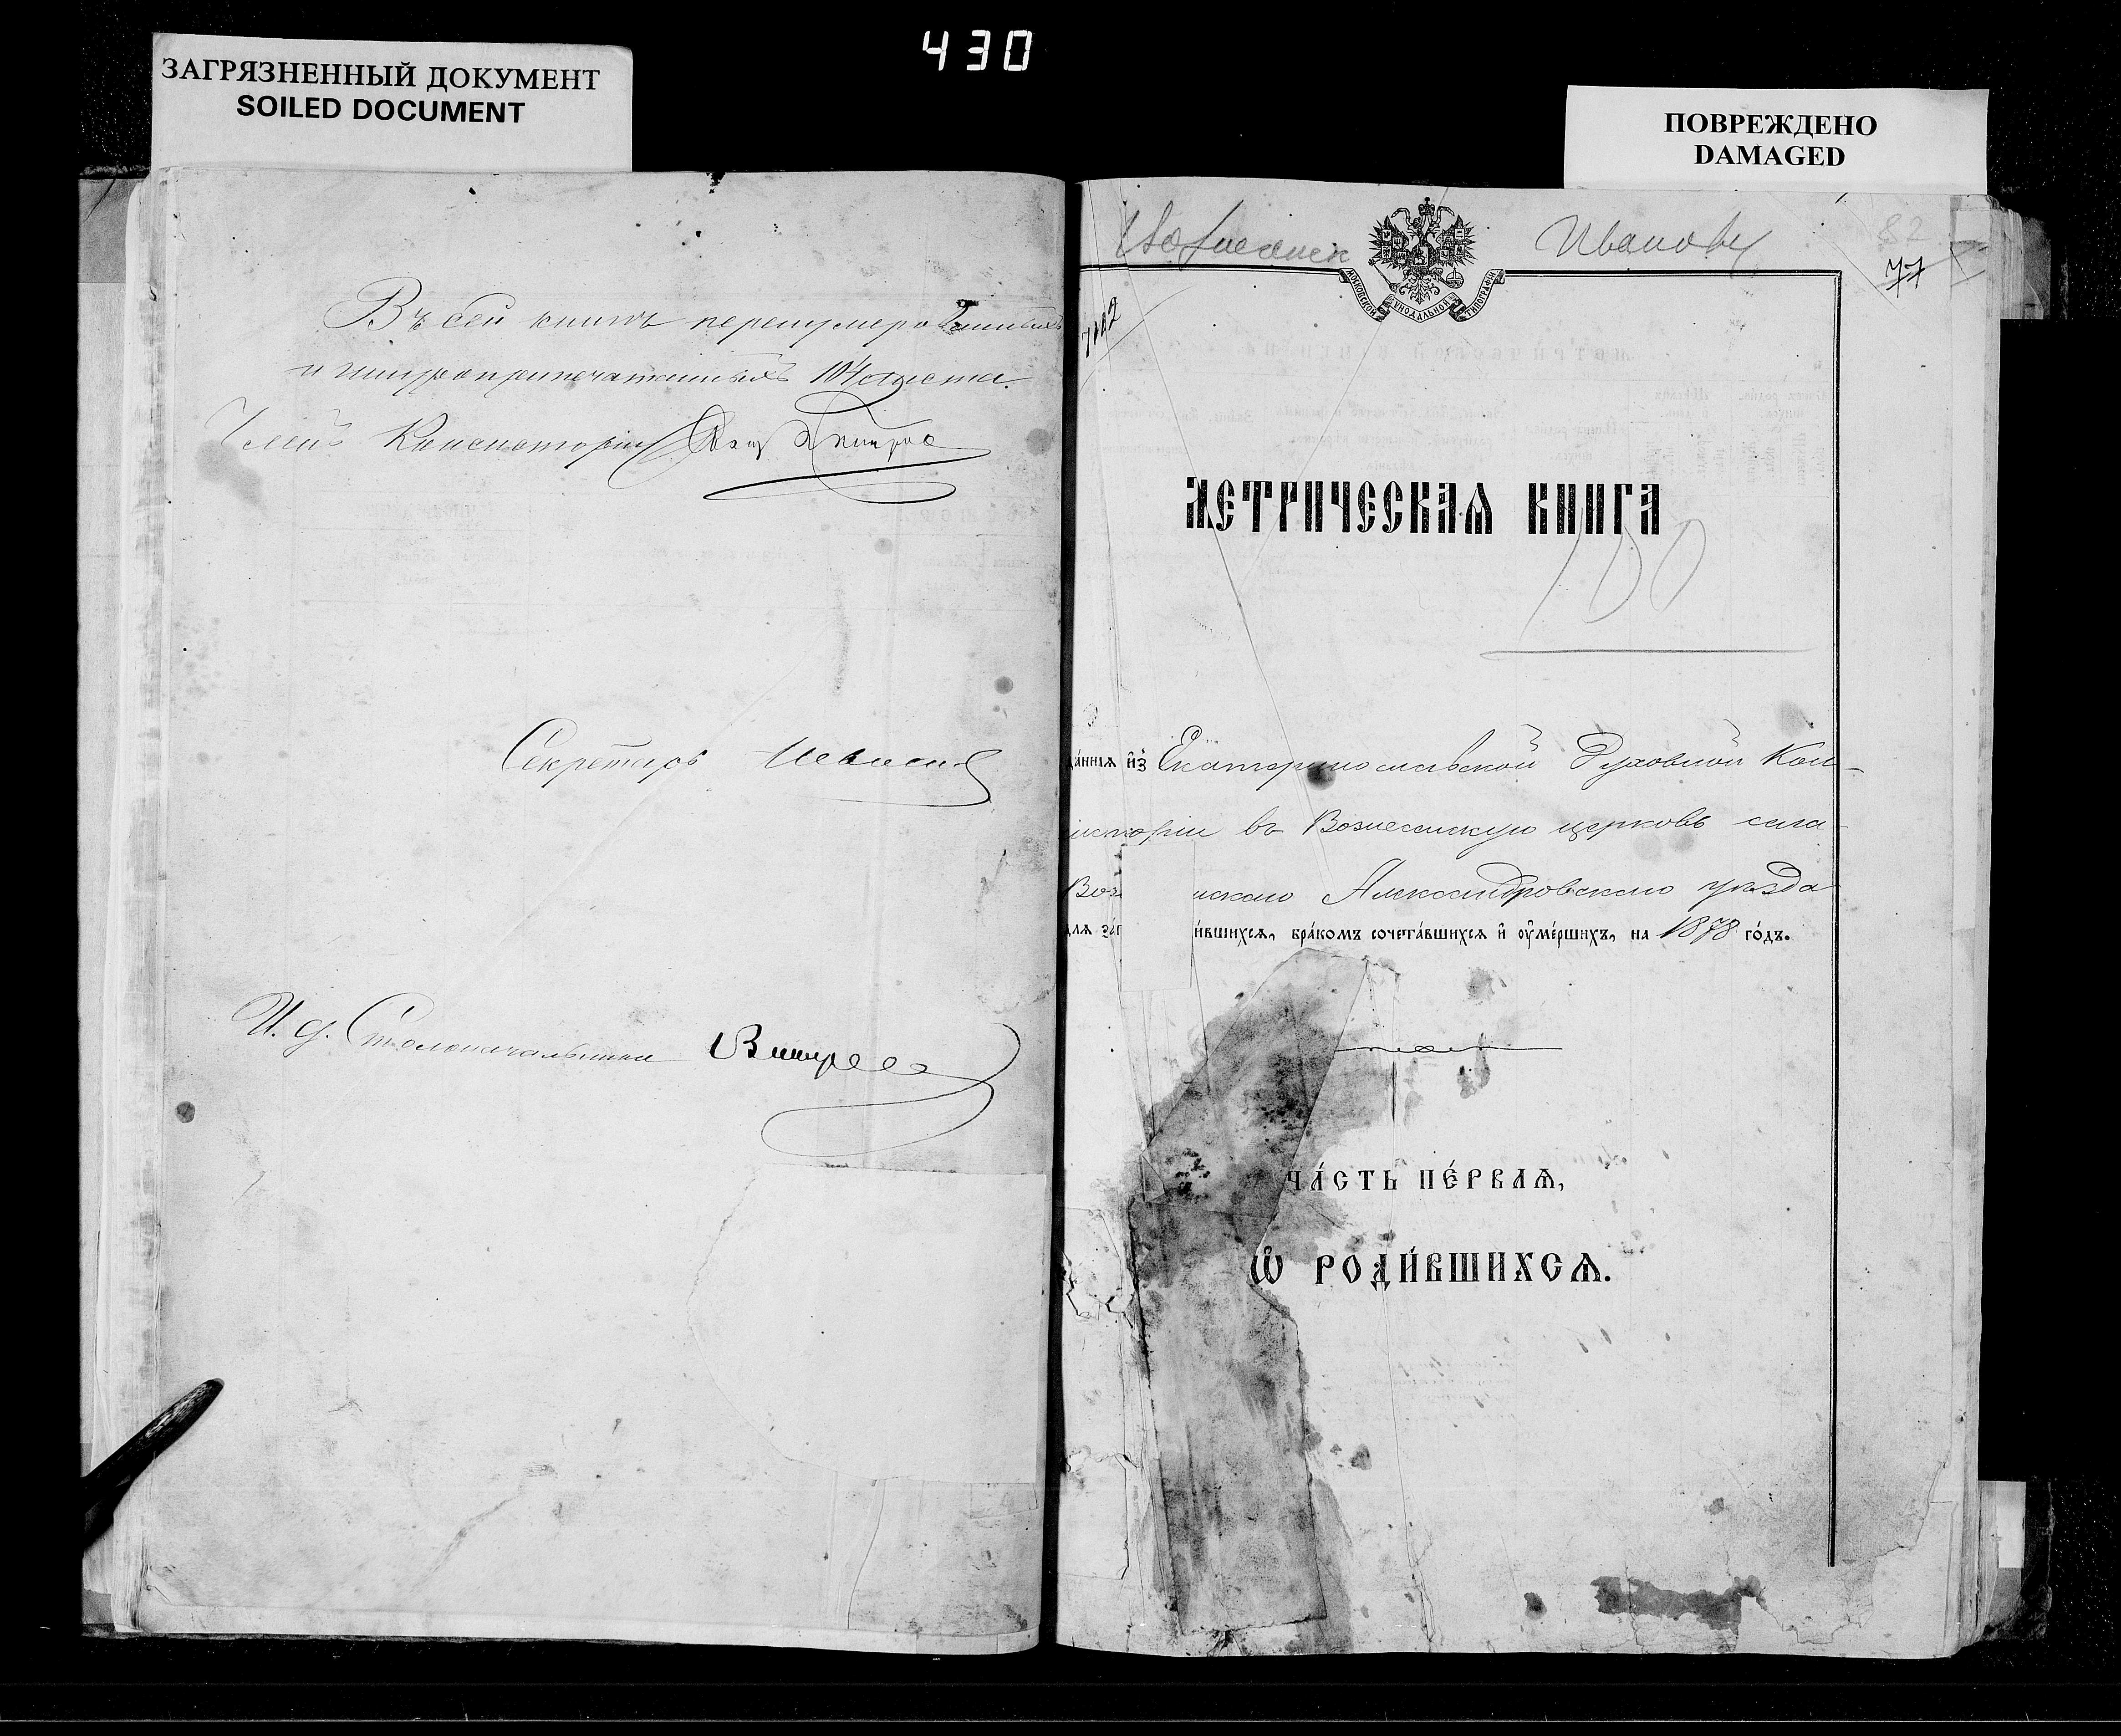 430
ЗАГРЯЗНЕННЫЙ ДОКУМЕНТ
SOILED DOCUMENT
ПОВРЕЖДЕНО
DAMAGED
Въ сей книгѣ перенумерованныхъ
и шнуроприпечатанныхъ 104 листа.
Членъ Консисторіи
Секретарь
И. д. Столоначальника
Вознесенск
82
77
МОСКОВСКОЙ СѴНОДАЛЬНОЙ ТИПОГРАФІИ
МЕТРИЧЕСКАѦ КНИГА
100
да́ннаѧ и҆з̾ Екатеринославской Духовной Кон-
систоріи въ Вознесенскую церковь села
Воз нскаго Александровскаго уѣзда
для за́п и́вшихсѧ, бра́комъ сочета́вшихсѧ и҆ ᲂу҆ме́ршихъ, на 1878 го́дъ.
ЧА́СТЬ ПЕ́РВАѦ,
Ѽ РОДИ́ВШИХСѦ.